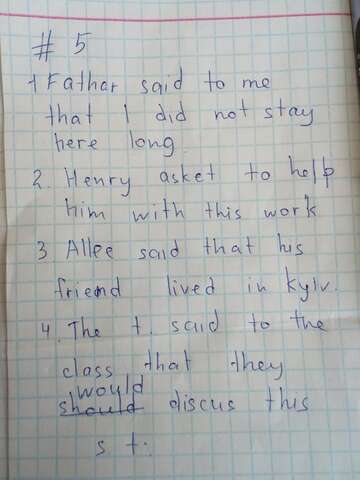 # 5
1 Fathar said to me
that I did not stay
here long.
2. Henry asket to help
him with this work
3 Allee said that his
friend lived in Kyiv.
4. The t. said to the
class that they
would
should discus this
s t.